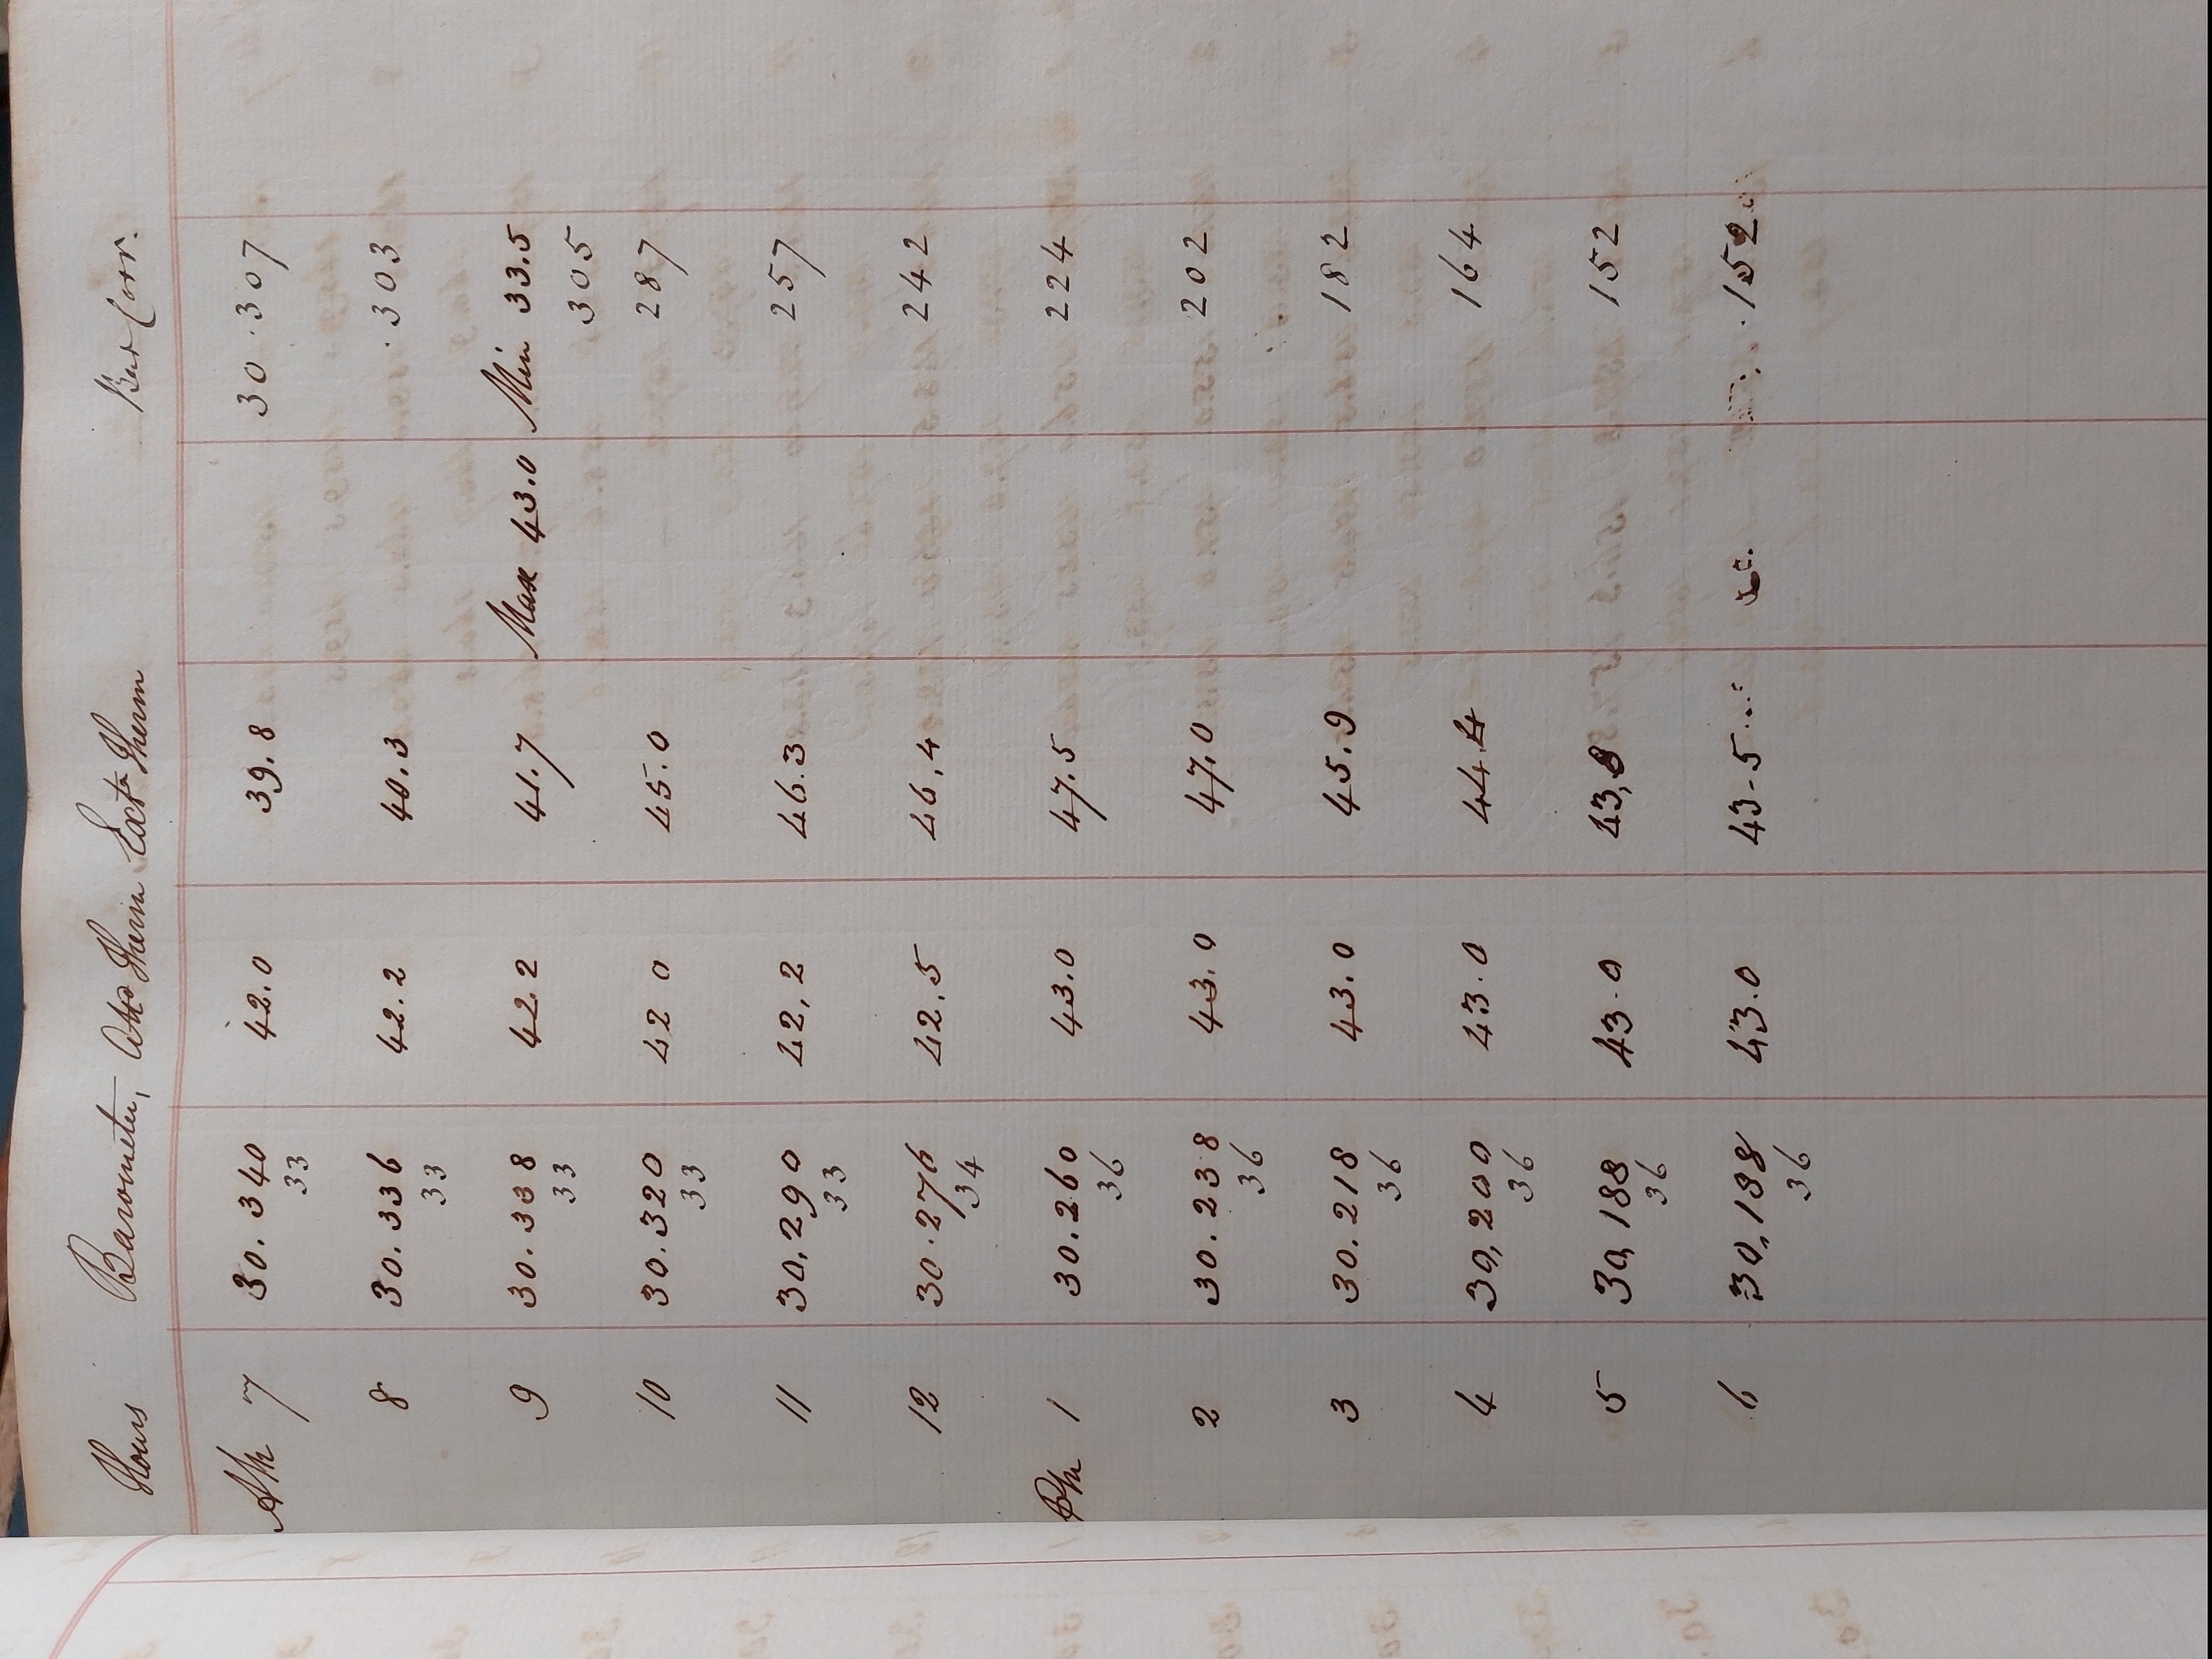 Hours Barometer, Attd Therm Extr Therm Bar Corr.
AM 7 30.340 42.0 39.8 30.307
33
8 30.336 42.2 40.3 .303
33
9 30.338 42.2 41.7 Max 43.0 Min 33.5
33 305
10 30.320 42 0 45.0 287
33
11 30,290 42,2 46.3 257
33
12 30.276 42.5 46,4 242
34
PM 1 30.260 43.0 47.5 224
36
2 30.238 43.0 47.0 202
36
3 30.218 43.0 45.9 182
36
4 30,200 43.0 44.4 164
36
5 30,188 43.0 43,8 152
36
6 30,188 43.0 43-5 .152
36